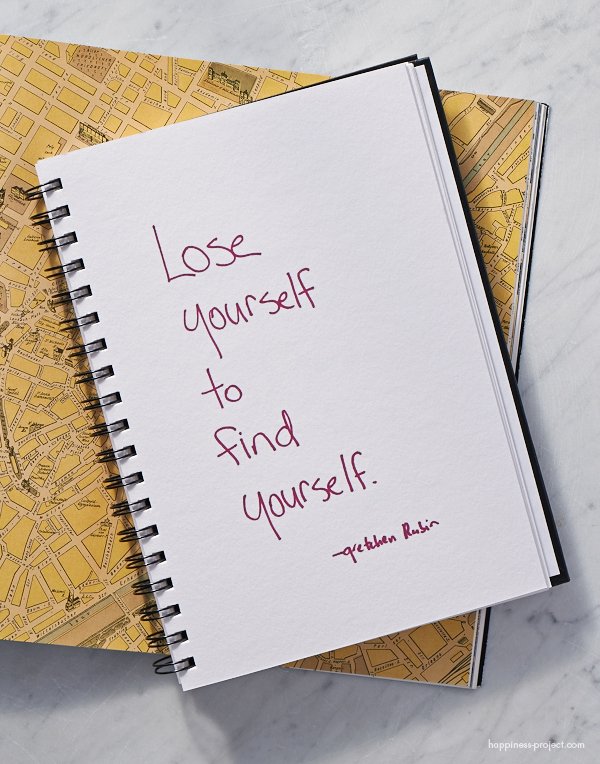 Lose
yourself
to
find
yourself.
—gretchen Rubin
happiness-project.com